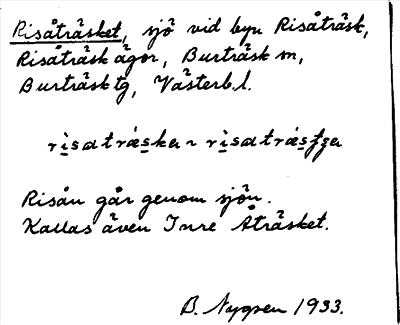 Risåträsket, sjö vid byn Risåträsk,
Risåträsk ägor, Burträsk sn,
Burträsk tg, Västerb.l.
Risån går genom sjön.
Kallas även Inre Åträsket.
B. Nygren 1933.